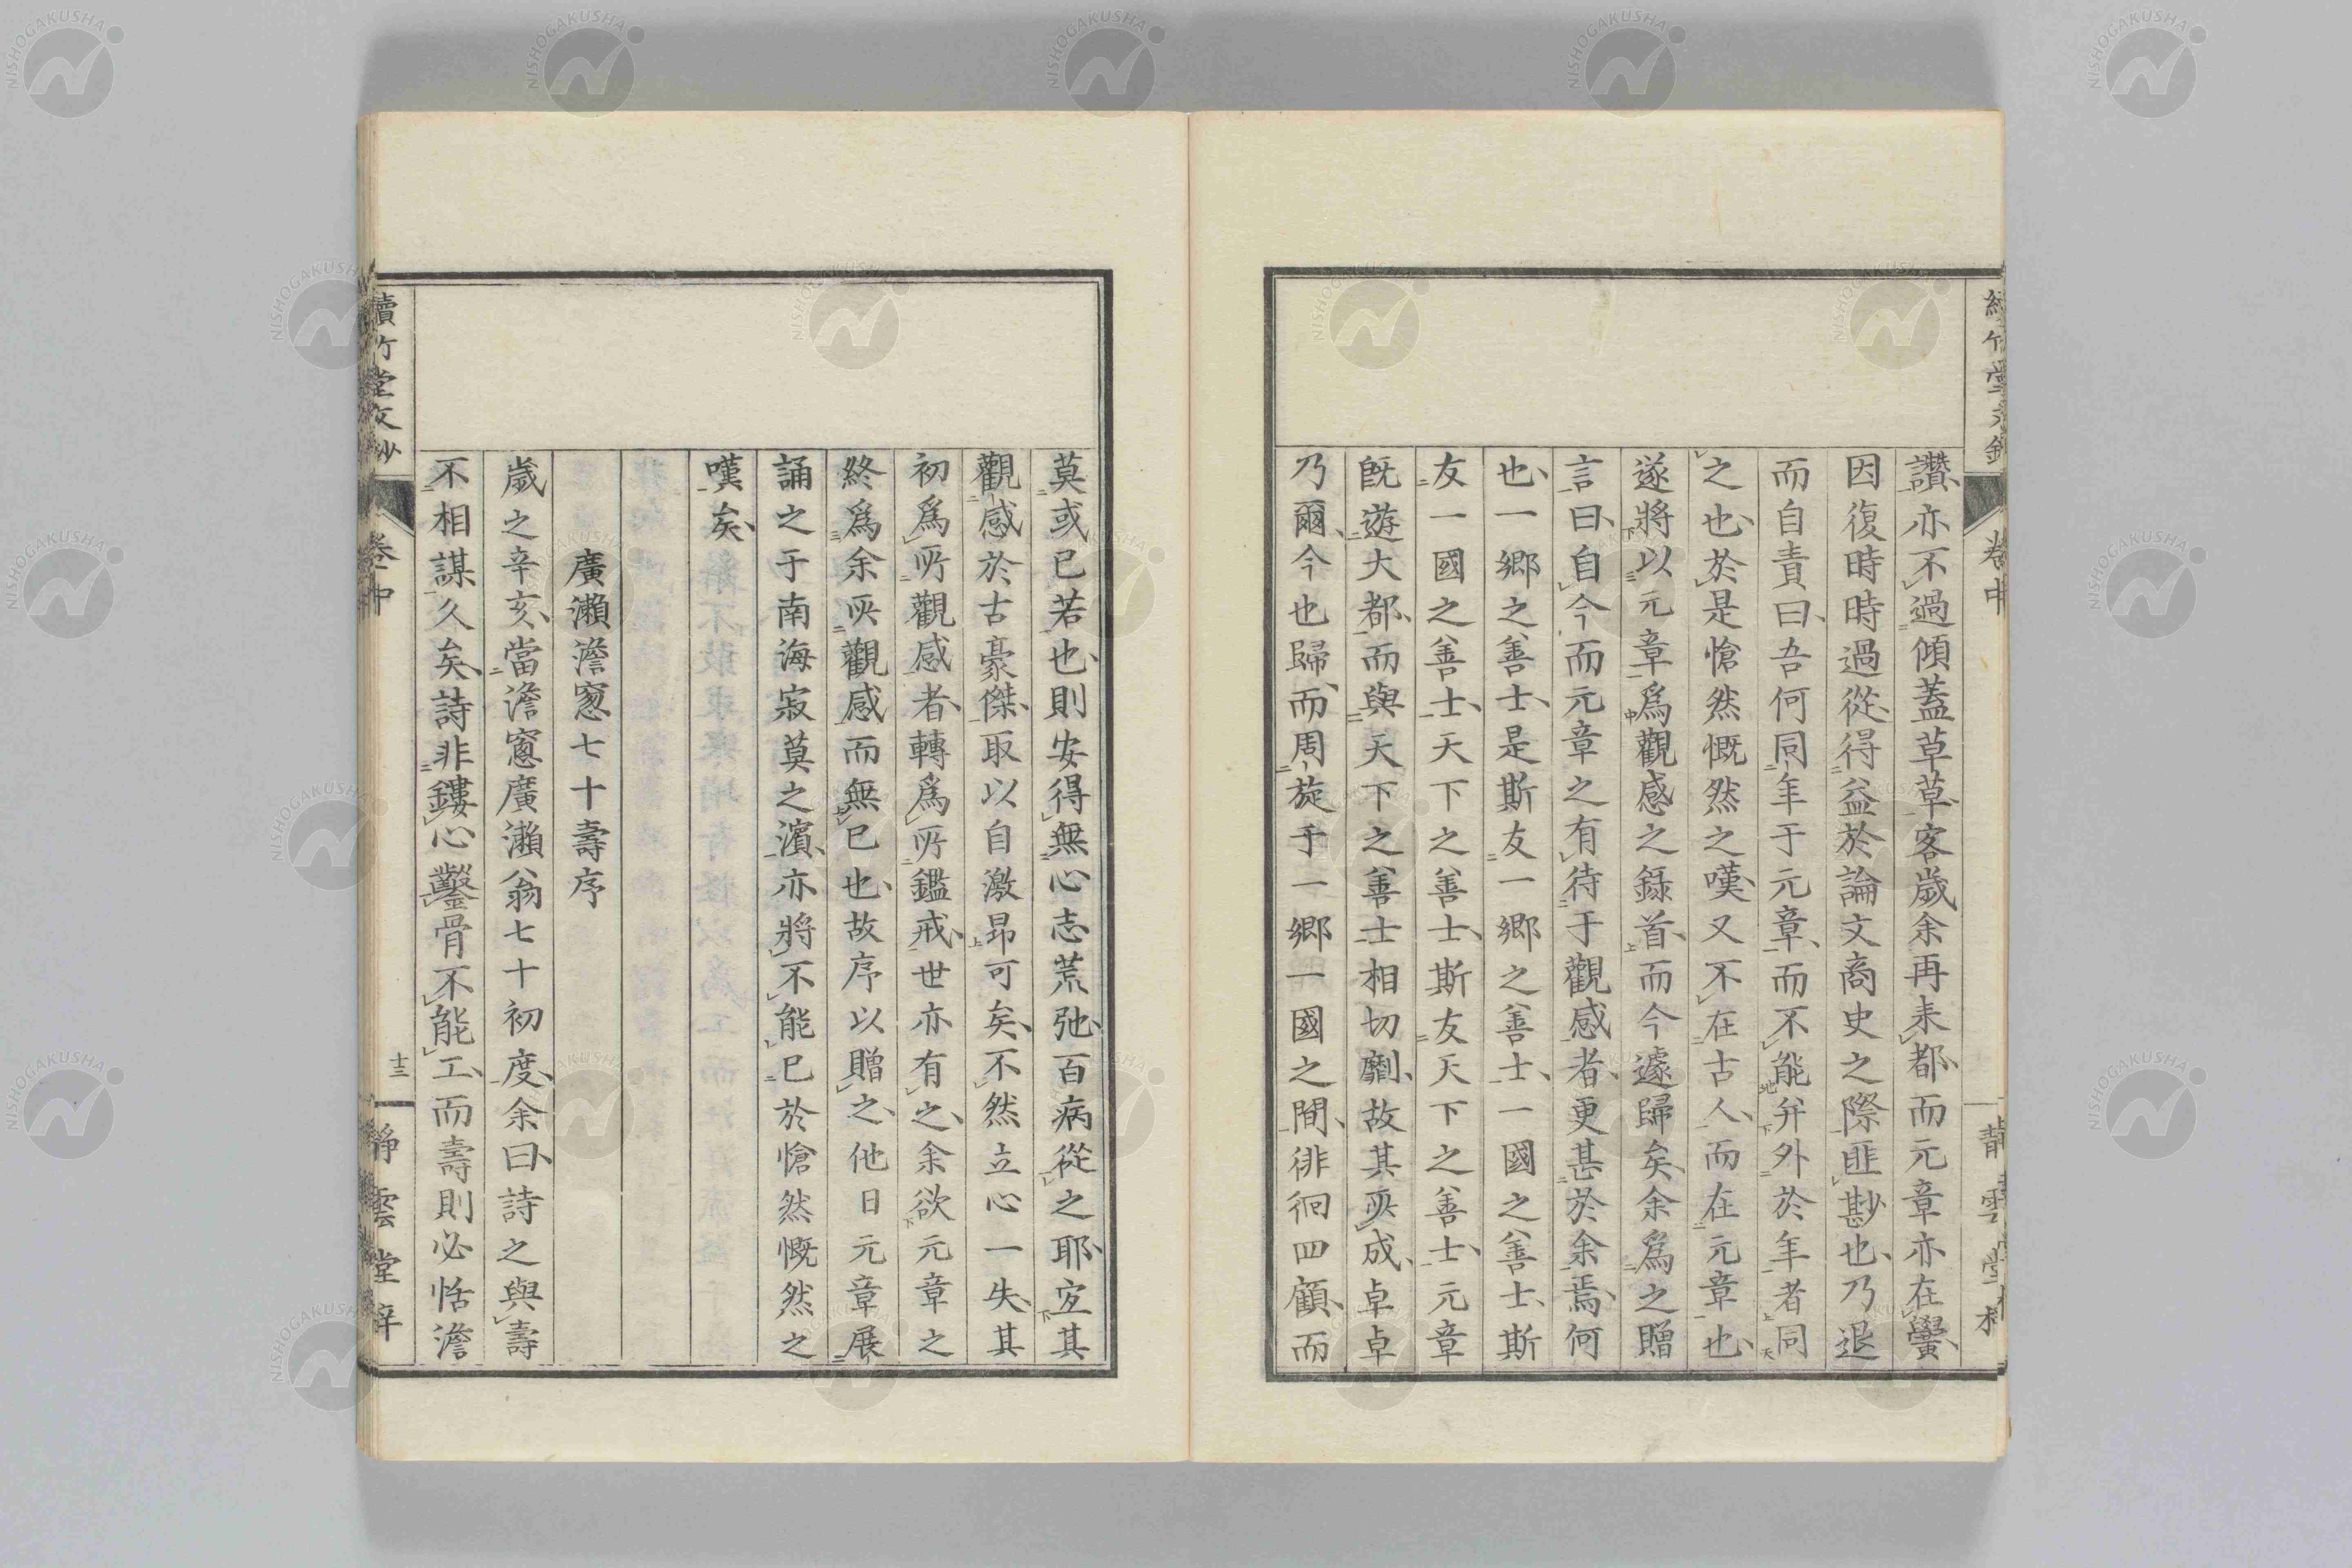 續竹堂文鈔 卷中 靜雲堂梓
讚、亦不過傾蓋草草、客歲余再来都、而元章亦在黌、
因復時時過從、得益於論文商史之際匪尠也、乃退
而自責曰、吾何同年于元章、而不能弁外於年者同
之也、於是愴然慨然之嘆、又不在古人、而在元章也、
遂將以元章爲觀感之錄首、而今遽歸矣、余爲之贈
言曰、自今而元章之有待于觀感者、更甚於余焉、何
也、一鄉之善士、是斯友一鄉之善士、一國之善士、斯
友一國之善士、天下之善士、斯友天下之善士、元章
既遊大都、而與天下之善士相切劘、故其所成、卓卓
乃爾、今也歸、而周旋于一鄉一國之間、徘徊四顧、而
莫或已若也、則安得無心志荒弛、百病從之耶、宜其
觀感於古豪傑、取以自激昂可矣、不然立心一失、其
初爲所觀感者、轉爲所鑑戒、世亦有之、余欲元章之
終爲余所觀感而無已也、故序以贈之、他日元章展
誦之于南海寂莫之濱、亦將不能已於愴然慨然之
嘆矣、
廣瀨澹窻七十壽序
歲之辛亥、當澹窻廣瀨翁七十初度、余曰、詩之與壽
不相謀久矣、詩非鏤心鑿骨不能工、而壽則必恬澹
續竹堂文鈔 卷中 十三 靜雲堂梓